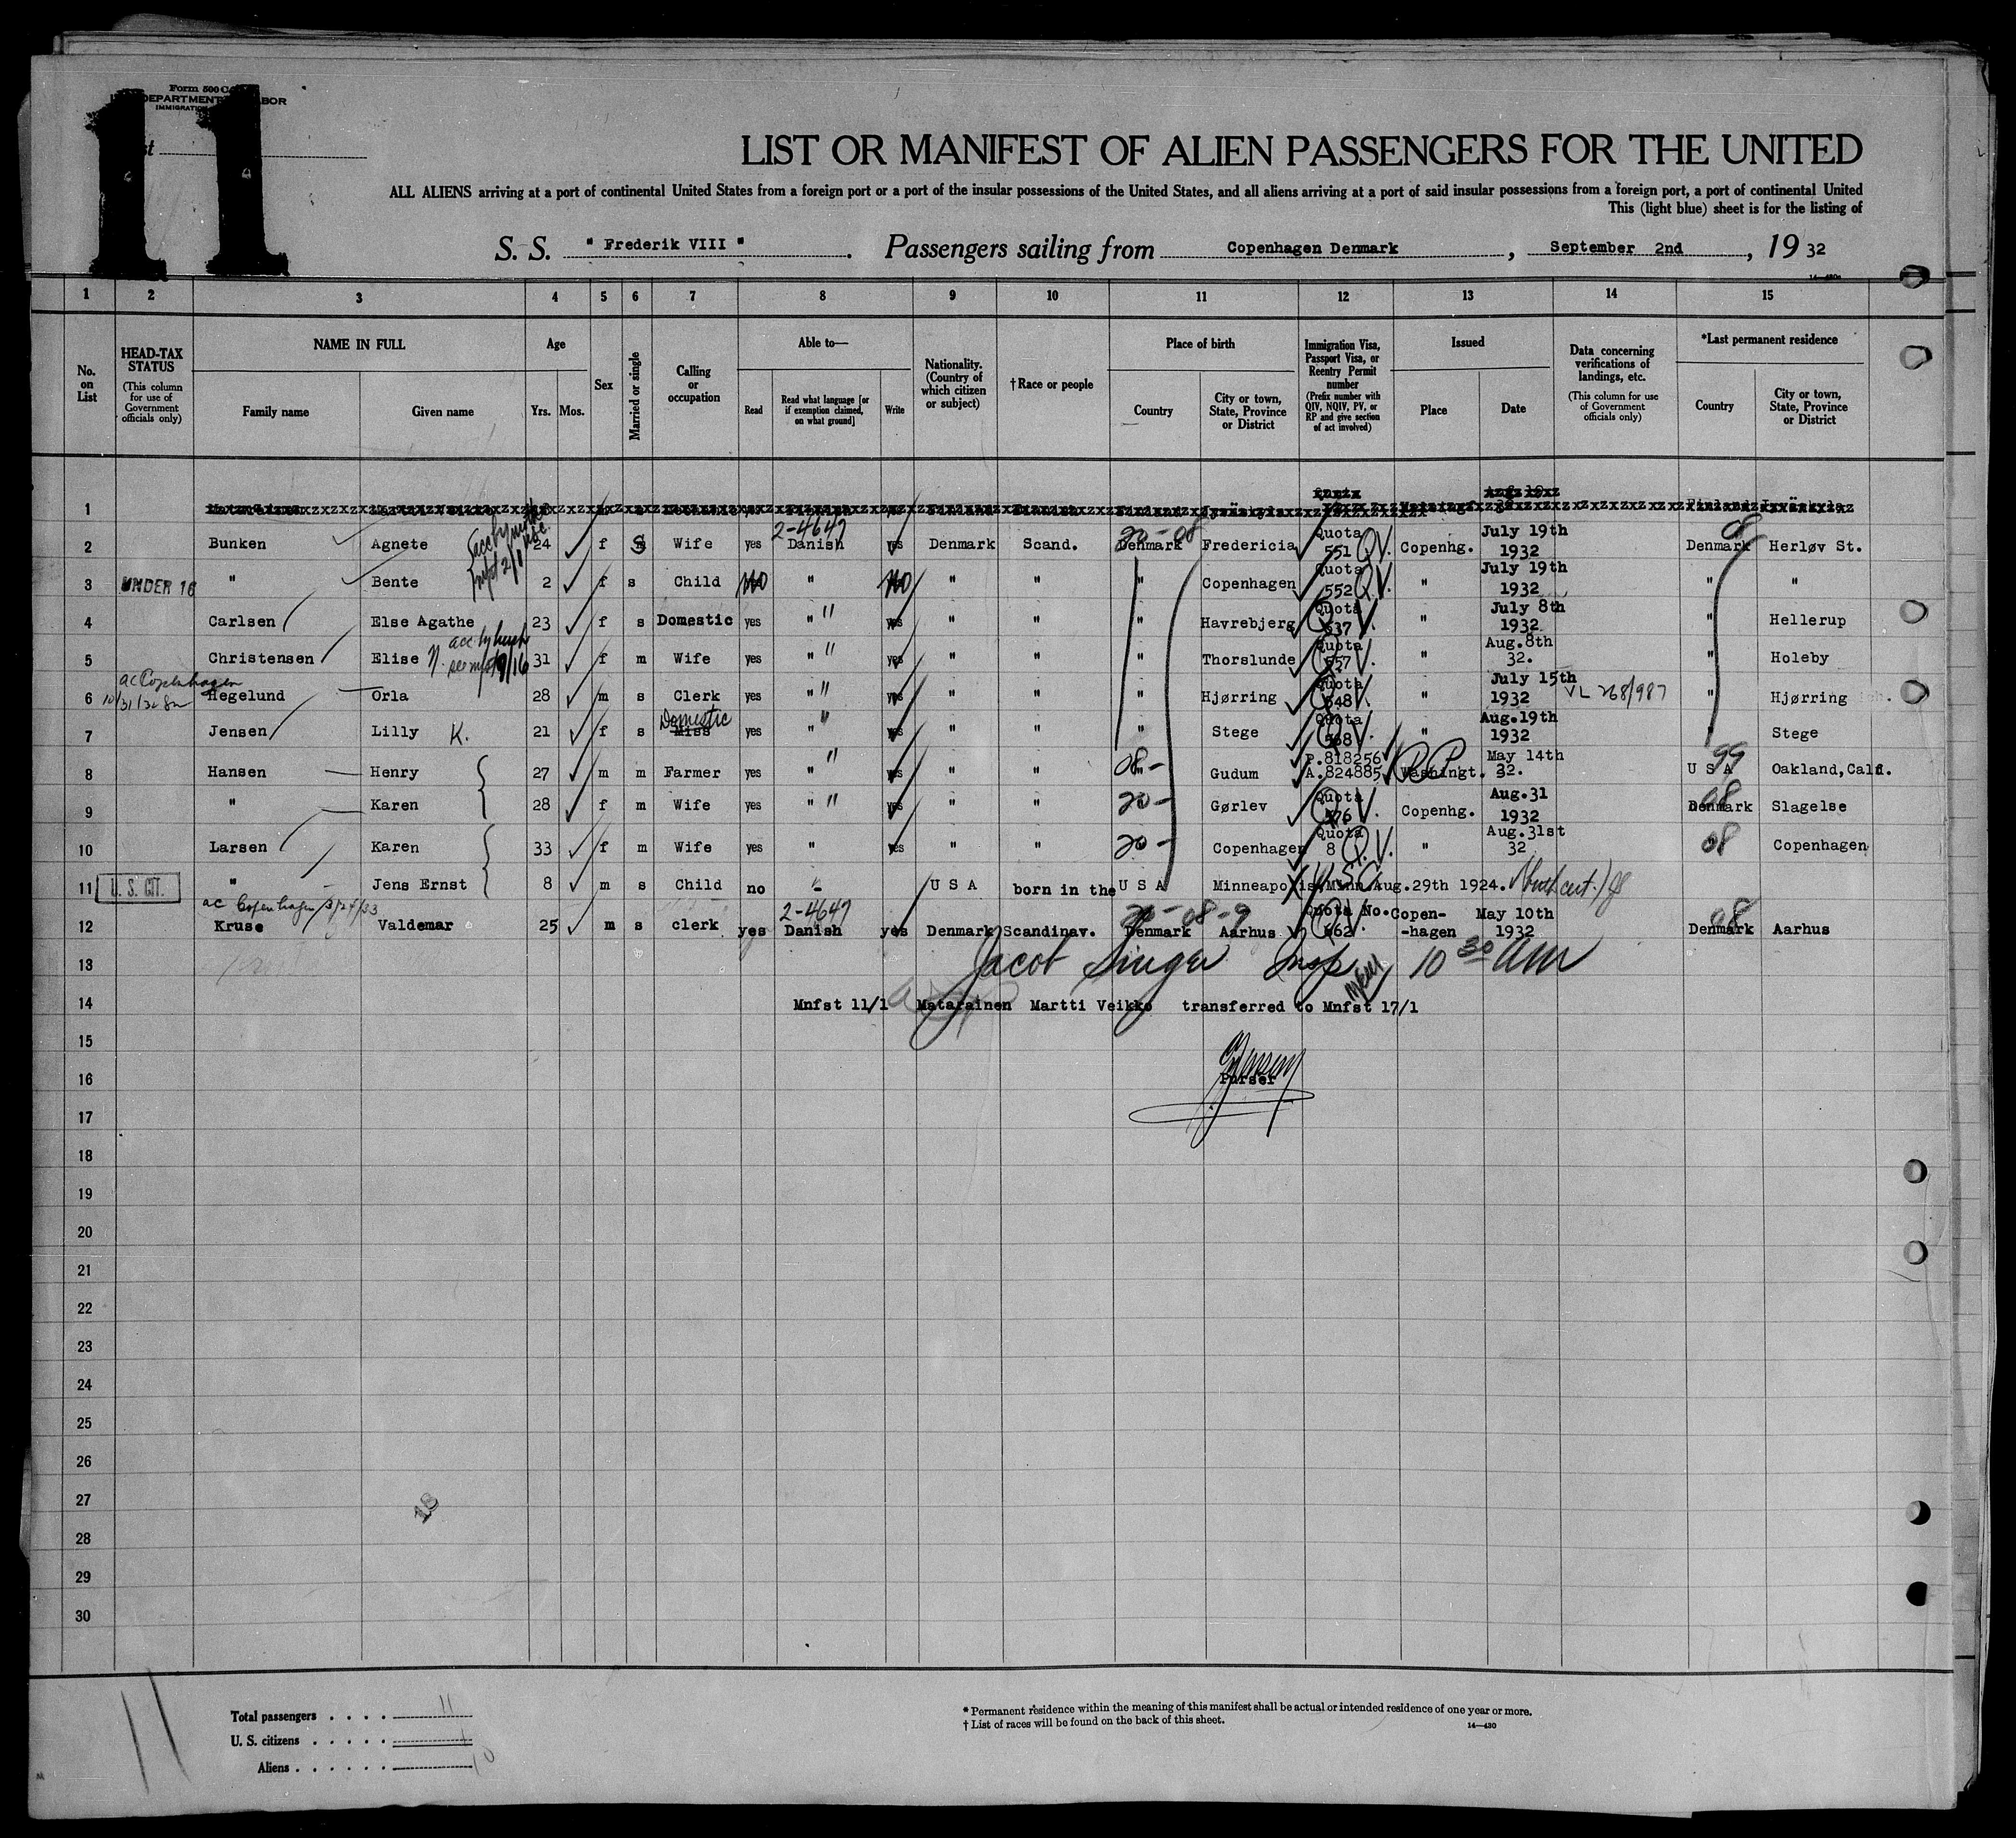 Form 500
DEPARTMENT LABOR
IMMIGRATION
11
LIST OR MANIFEST OF ALIEN PASSENGERS FOR THE UNITED
ALL ALIENS arriving at a port of continental United States from a foreign port or a port of the insular possessions of the United States, and all aliens arriving at a port of said insular possessions from a foreign port, a port of continental United
This (light blue) sheet is for the listing of
S. S. " Frederik VIII ". Passengers sailing from Copenhagen Denmark, September 2nd, 19 32
1 2 3 4 5 6 7 8 9 10 11 12 13 14 15
No. on List
HEAD-TAX STATUS (This column for use of Government officials only)
NAME IN FULL Family name Given name
Age Yrs. Mos.
Sex
Married or single
Calling or occupation
Able to— Read Read what language [or if exemption claimed, on what ground] Write
Nationality. (Country of which citizen or subject)
†Race or people
Place of birth Country City or town, State, Province or District
Immigration Visa, Passport Visa, or Reentry Permit number (Prefix number with QIV, NQIV, PV, or RP and give section of act involved)
Issued Place Date
Data concerning verifications of landings, etc. (This column for use of Government officials only)
*Last permanent residence Country City or town, State, Province or District
1
2 Bunken Agnete 24 f S Wife yes 2-4647 Danish yes Denmark Scand. 20-08 Denmark Fredericia Quota 551 QV. Copenhg. July 19th 1932 08 Denmark Herløv St.
3 UNDER 16 " Bente 2 f s Child no " no " " " Copenhagen Quota 552 QV. " July 19th 1932 " "
4 Carlsen Else Agathe 23 f s Domestic yes " " yes " " " Havrebjerg Quota 537 QV. " July 8th 1932 " Hellerup
5 Christensen Elise 31 f m Wife yes " " yes " " " Thorslunde Quota 557 QV. " Aug.8th 32. " Holeby
6 ac Copenhagen Hegelund Orla 28 m s Clerk yes " " yes " " " Hjørring Quota 548 QV. " July 15th 1932 VL 268/987 " Hjørring
7 Jensen Lilly K. 21 f s Domestic Miss yes " " yes " " " Stege Quota 568 QV. " Aug.19th 1932 " Stege
8 Hansen Henry 27 m m Farmer yes " " yes " " 08- " Gudum P.818256 A.824885 RP Washingt. May 14th 32. 99 U S A Oakland, Calf.
9 " Karen 28 f m Wife yes " " yes " " 20- Gørlev Quota 576 QV. Copenhg. Aug.31 1932 08 Denmark Slagelse
10 Larsen Karen 33 f m Wife yes " yes " " 20- Copenhagen Quota 8 Q.V. " Aug.31st 32 08 Copenhagen
11 U. S. CIT. " Jens Ernst 8 m s Child no - U S A born in the U S A Minneapolis, Minn. Aug.29th 1924.
ac Copenhagen 3/24/33
12 Kruse Valdemar 25 m s clerk yes 2-4647 Danish yes Denmark Scandinav. 20-08-9 Denmark Aarhus Quota No. 662 QV. Copen- -hagen May 10th 1932 08 Denmark Aarhus
13 Jacob Singer Insp 10 30 am
14 Mnfst 11/1 Matarainen Martti Veikko transferred to Mnfst 17/1
15
16 Purser
17
18
19
20
21
22
23
24
25
26
27
28
29
30
Total passengers 11
U. S. citizens 1
Aliens 10
* Permanent residence within the meaning of this manifest shall be actual or intended residence of one year or more.
† List of races will be found on the back of this sheet. 14—430
11